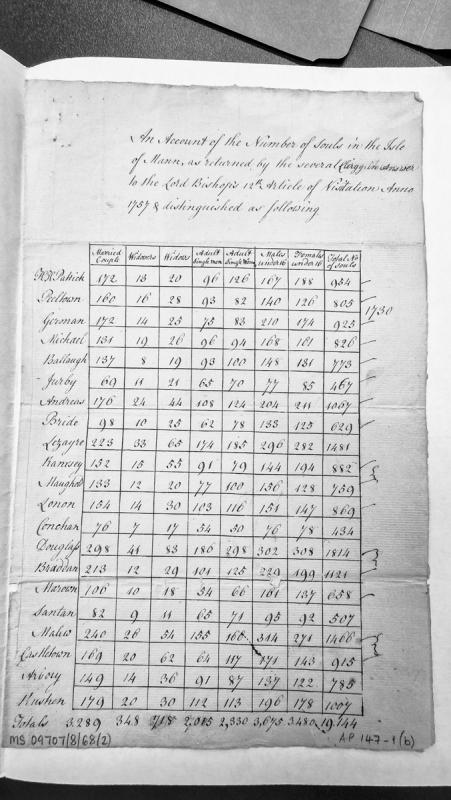 An Account of the Number of Souls in the Isle
of Mann, as returned by the several Clergy in Answer
to the Lord Bishop's 12th Article of Visitation Anno
1757 & distinguished as following
Married Couple Widowers Widows Adult Single men Adult Single Women Males under 16 Females under 16 Total No of Souls
Kk Patrick 172 13 20 96 126 167 188 954
Peeltown 160 16 28 93 82 140 126 805
1730
German 172 14 25 75 83 210 174 925
Michael 131 19 26 96 94 168 161 826
Ballaugh 137 8 19 93 100 148 131 773
Jurby 69 11 21 65 70 77 85 467
Andreas 176 24 44 108 124 204 211 1067
Bride 98 10 25 62 78 133 125 629
Lezayre 223 33 65 174 185 296 282 1481
Ramsey 152 15 55 91 79 144 194 882
Maughold 133 12 20 77 100 156 128 759
Lonon 154 14 30 103 116 151 147 869
Conchan 76 7 17 54 50 76 78 434
Douglass 298 41 83 186 298 302 308 1814
Braddan 213 12 29 101 125 229 199 1121
Marown 106 10 18 54 66 161 137 658
Santan 82 9 11 65 71 95 92 507
Malew 240 26 54 155 166 314 271 1466
Castletown 169 20 62 64 117 171 143 915
Arbory 149 14 36 91 87 137 122 785
Rushen 179 20 30 112 113 196 178 1007
Totals 3,289 348 718 2,015 2,330 3,675 3,480 19,144
MS 09707/8/68/2) AP 147-1(b)